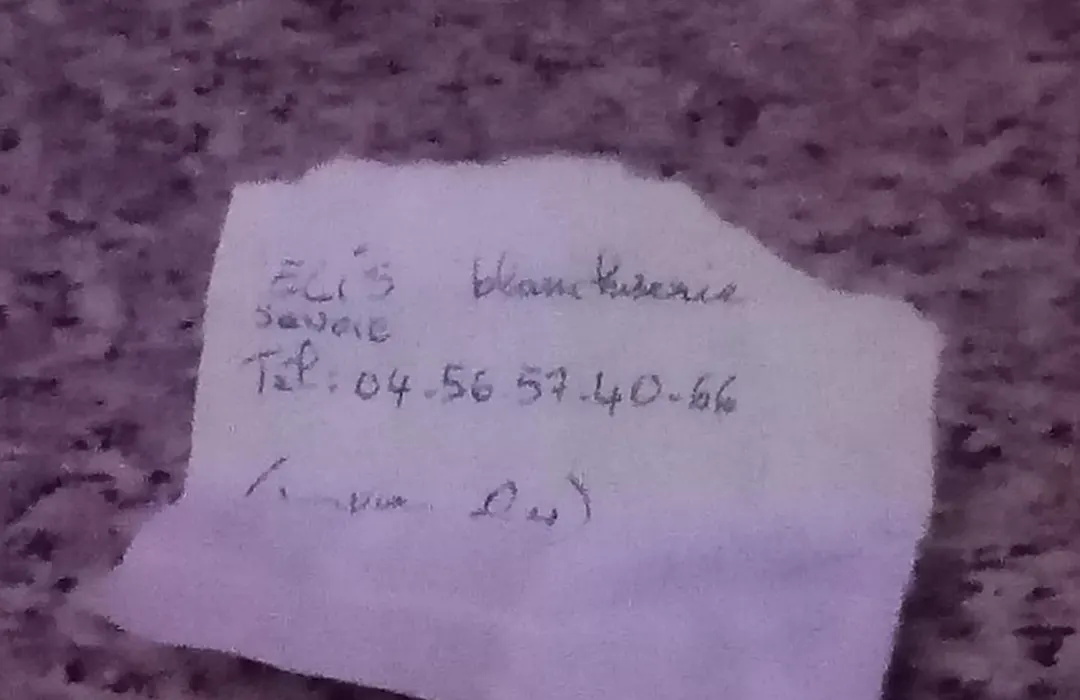 ELIS blanchisserie
Savoie
Tél : 04.56 57.40.66